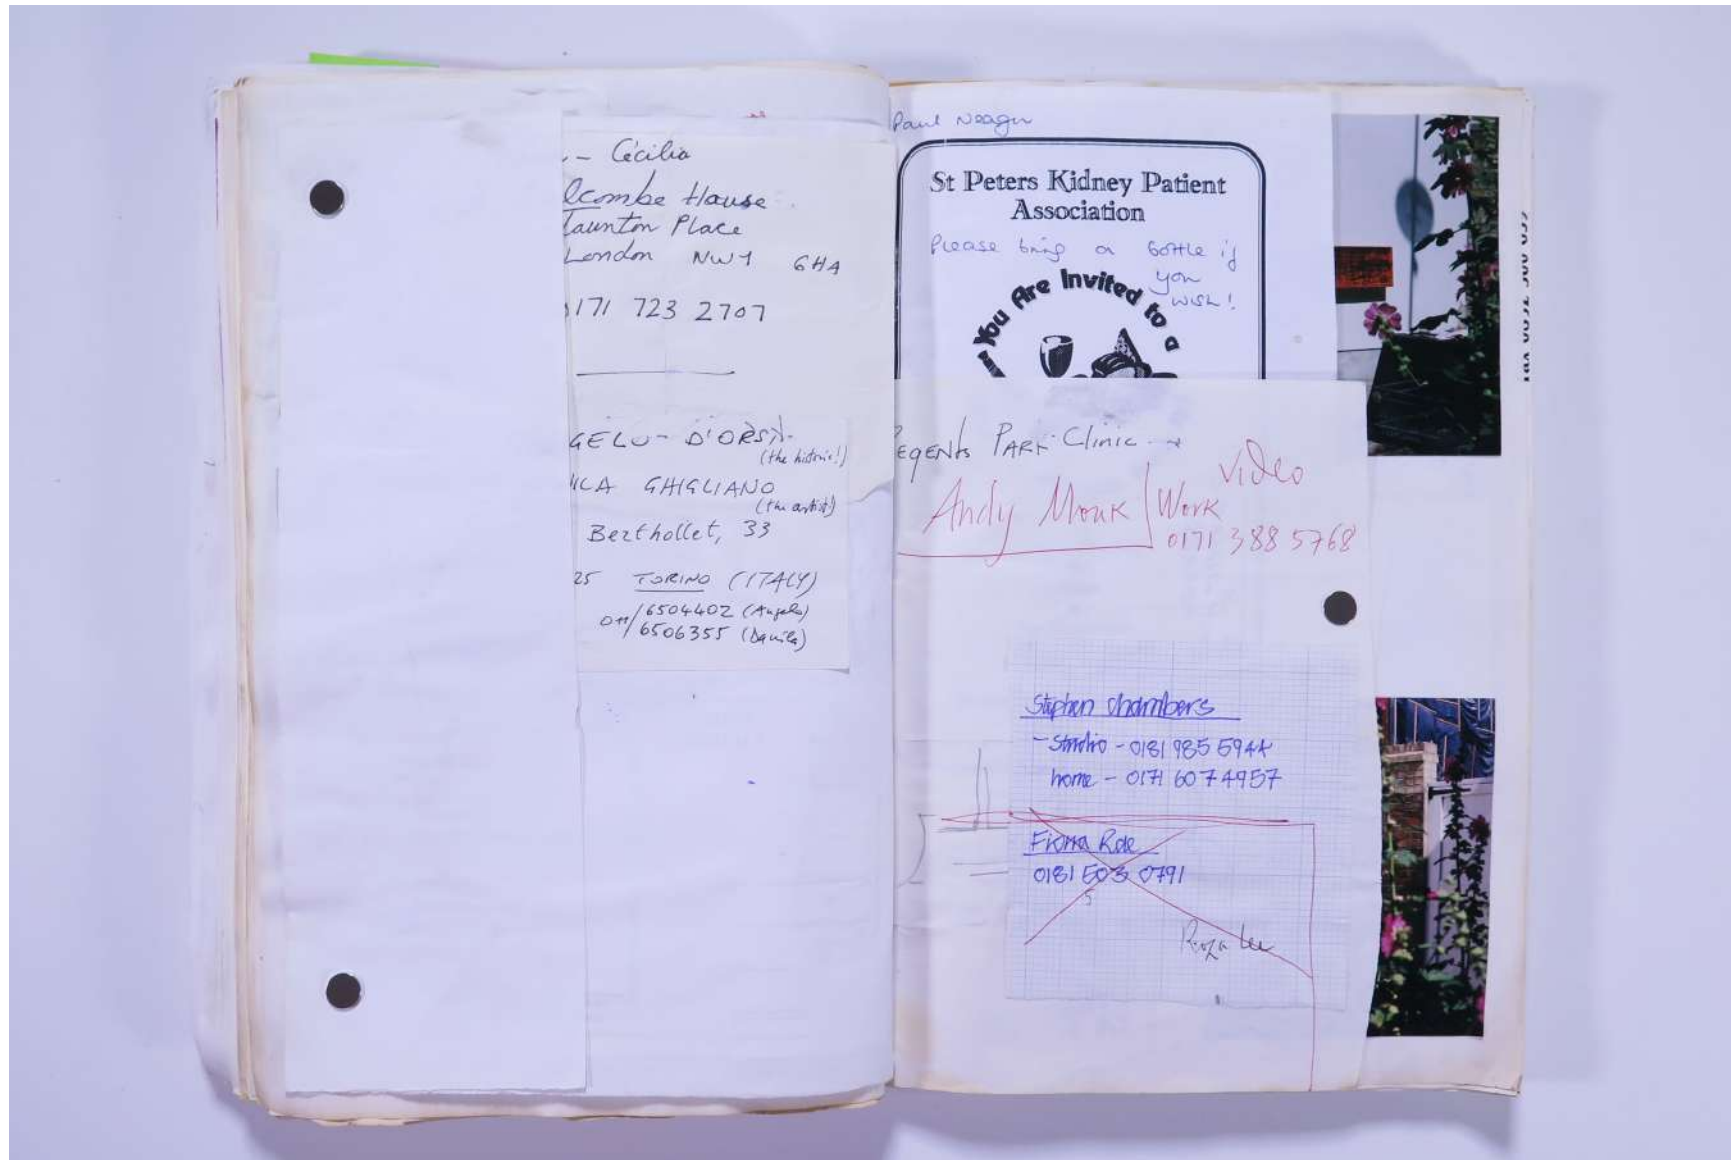 - Cécilia
lcombe House
Taunton Place
London NW1 6HA
0171 723 2707
GELU- D'ORSI
(the historic!)
ILA GHIGLIANO
(the artist)
Berthollet, 33
25 TORINO (ITALY)
011/6504402 (Angelo)
6506355 (Davila)
Paul Neagu
St Peters Kidney Patient
Association
Please bring a bottle if
you
wish!
You Are Invited to a
EGENTS PARK Clinic
video
Andy Monk Work
0171 388 5768
Stephen Chambers
- Studio - 0181 985 5944
home - 0171 607 4957
Fiona Rae
0181 503 0791
5
Roza Lee